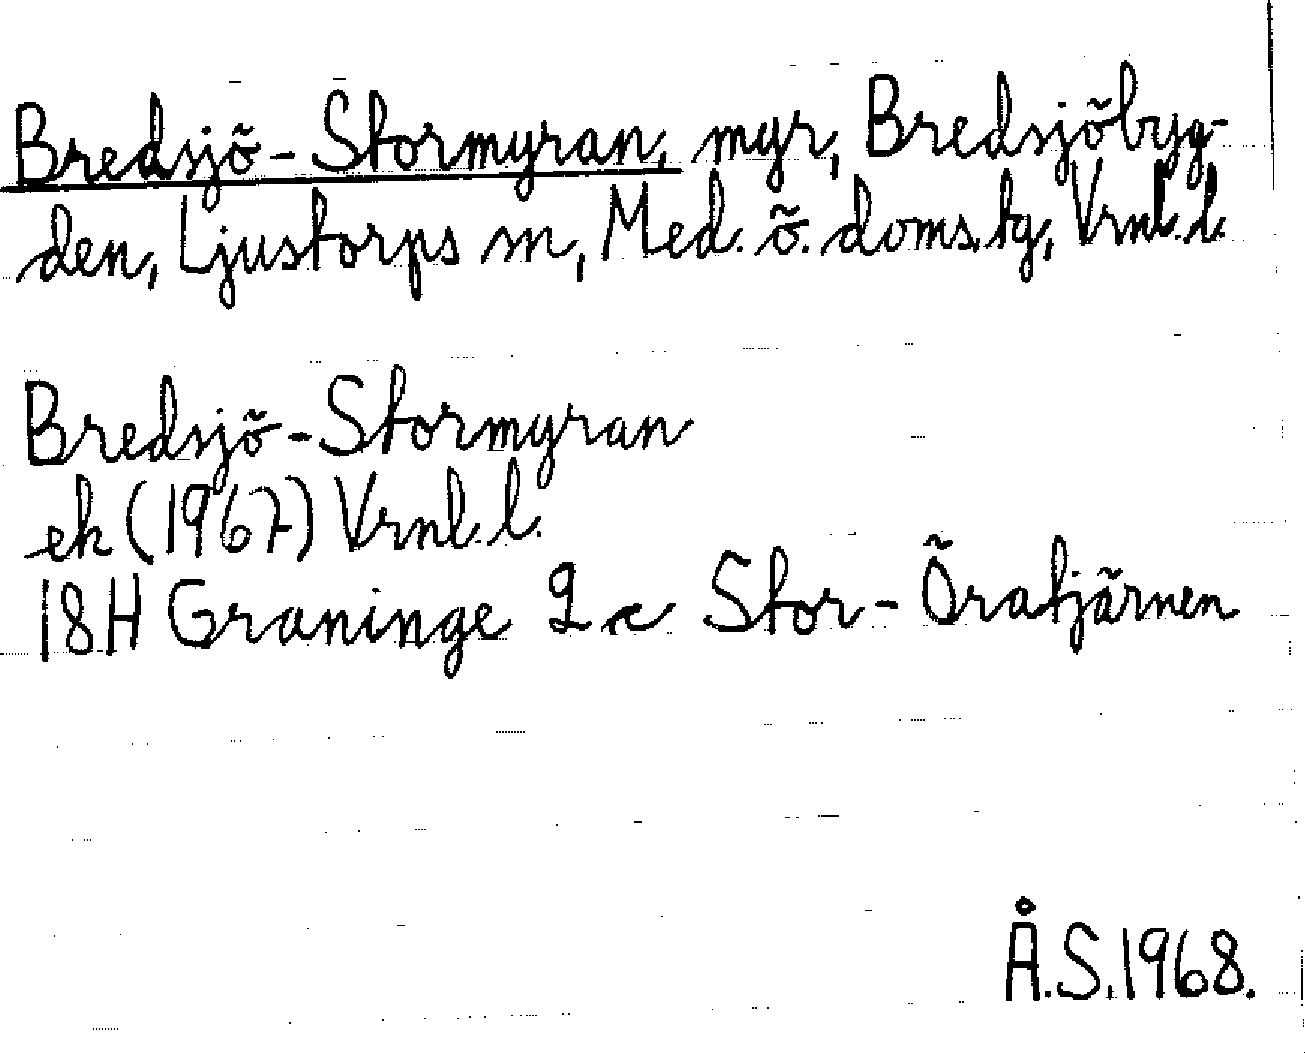 Bredsjö-Stormyran, myr, Bredsjöbyg-
den, Ljustorps sn, Med. ö. doms. tg, Vrnl. l.
Bredsjö-Stormyran
ek (1967) Vrnl. l.
18H Graninge 2 c Stor-Öratjärnen
Å.S. 1968.